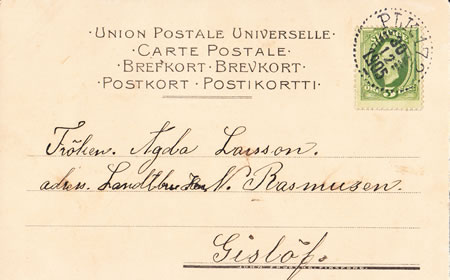 UNION POSTALE UNIVERSELLE
CARTE POSTALE
BREFKORT · BREVKORT
POSTKORT · POSTIKORTTI
30
12
1905
5
Fröken. Agda Larsson.
adress. Landtbr N. Rasmusen.
Gislöf.